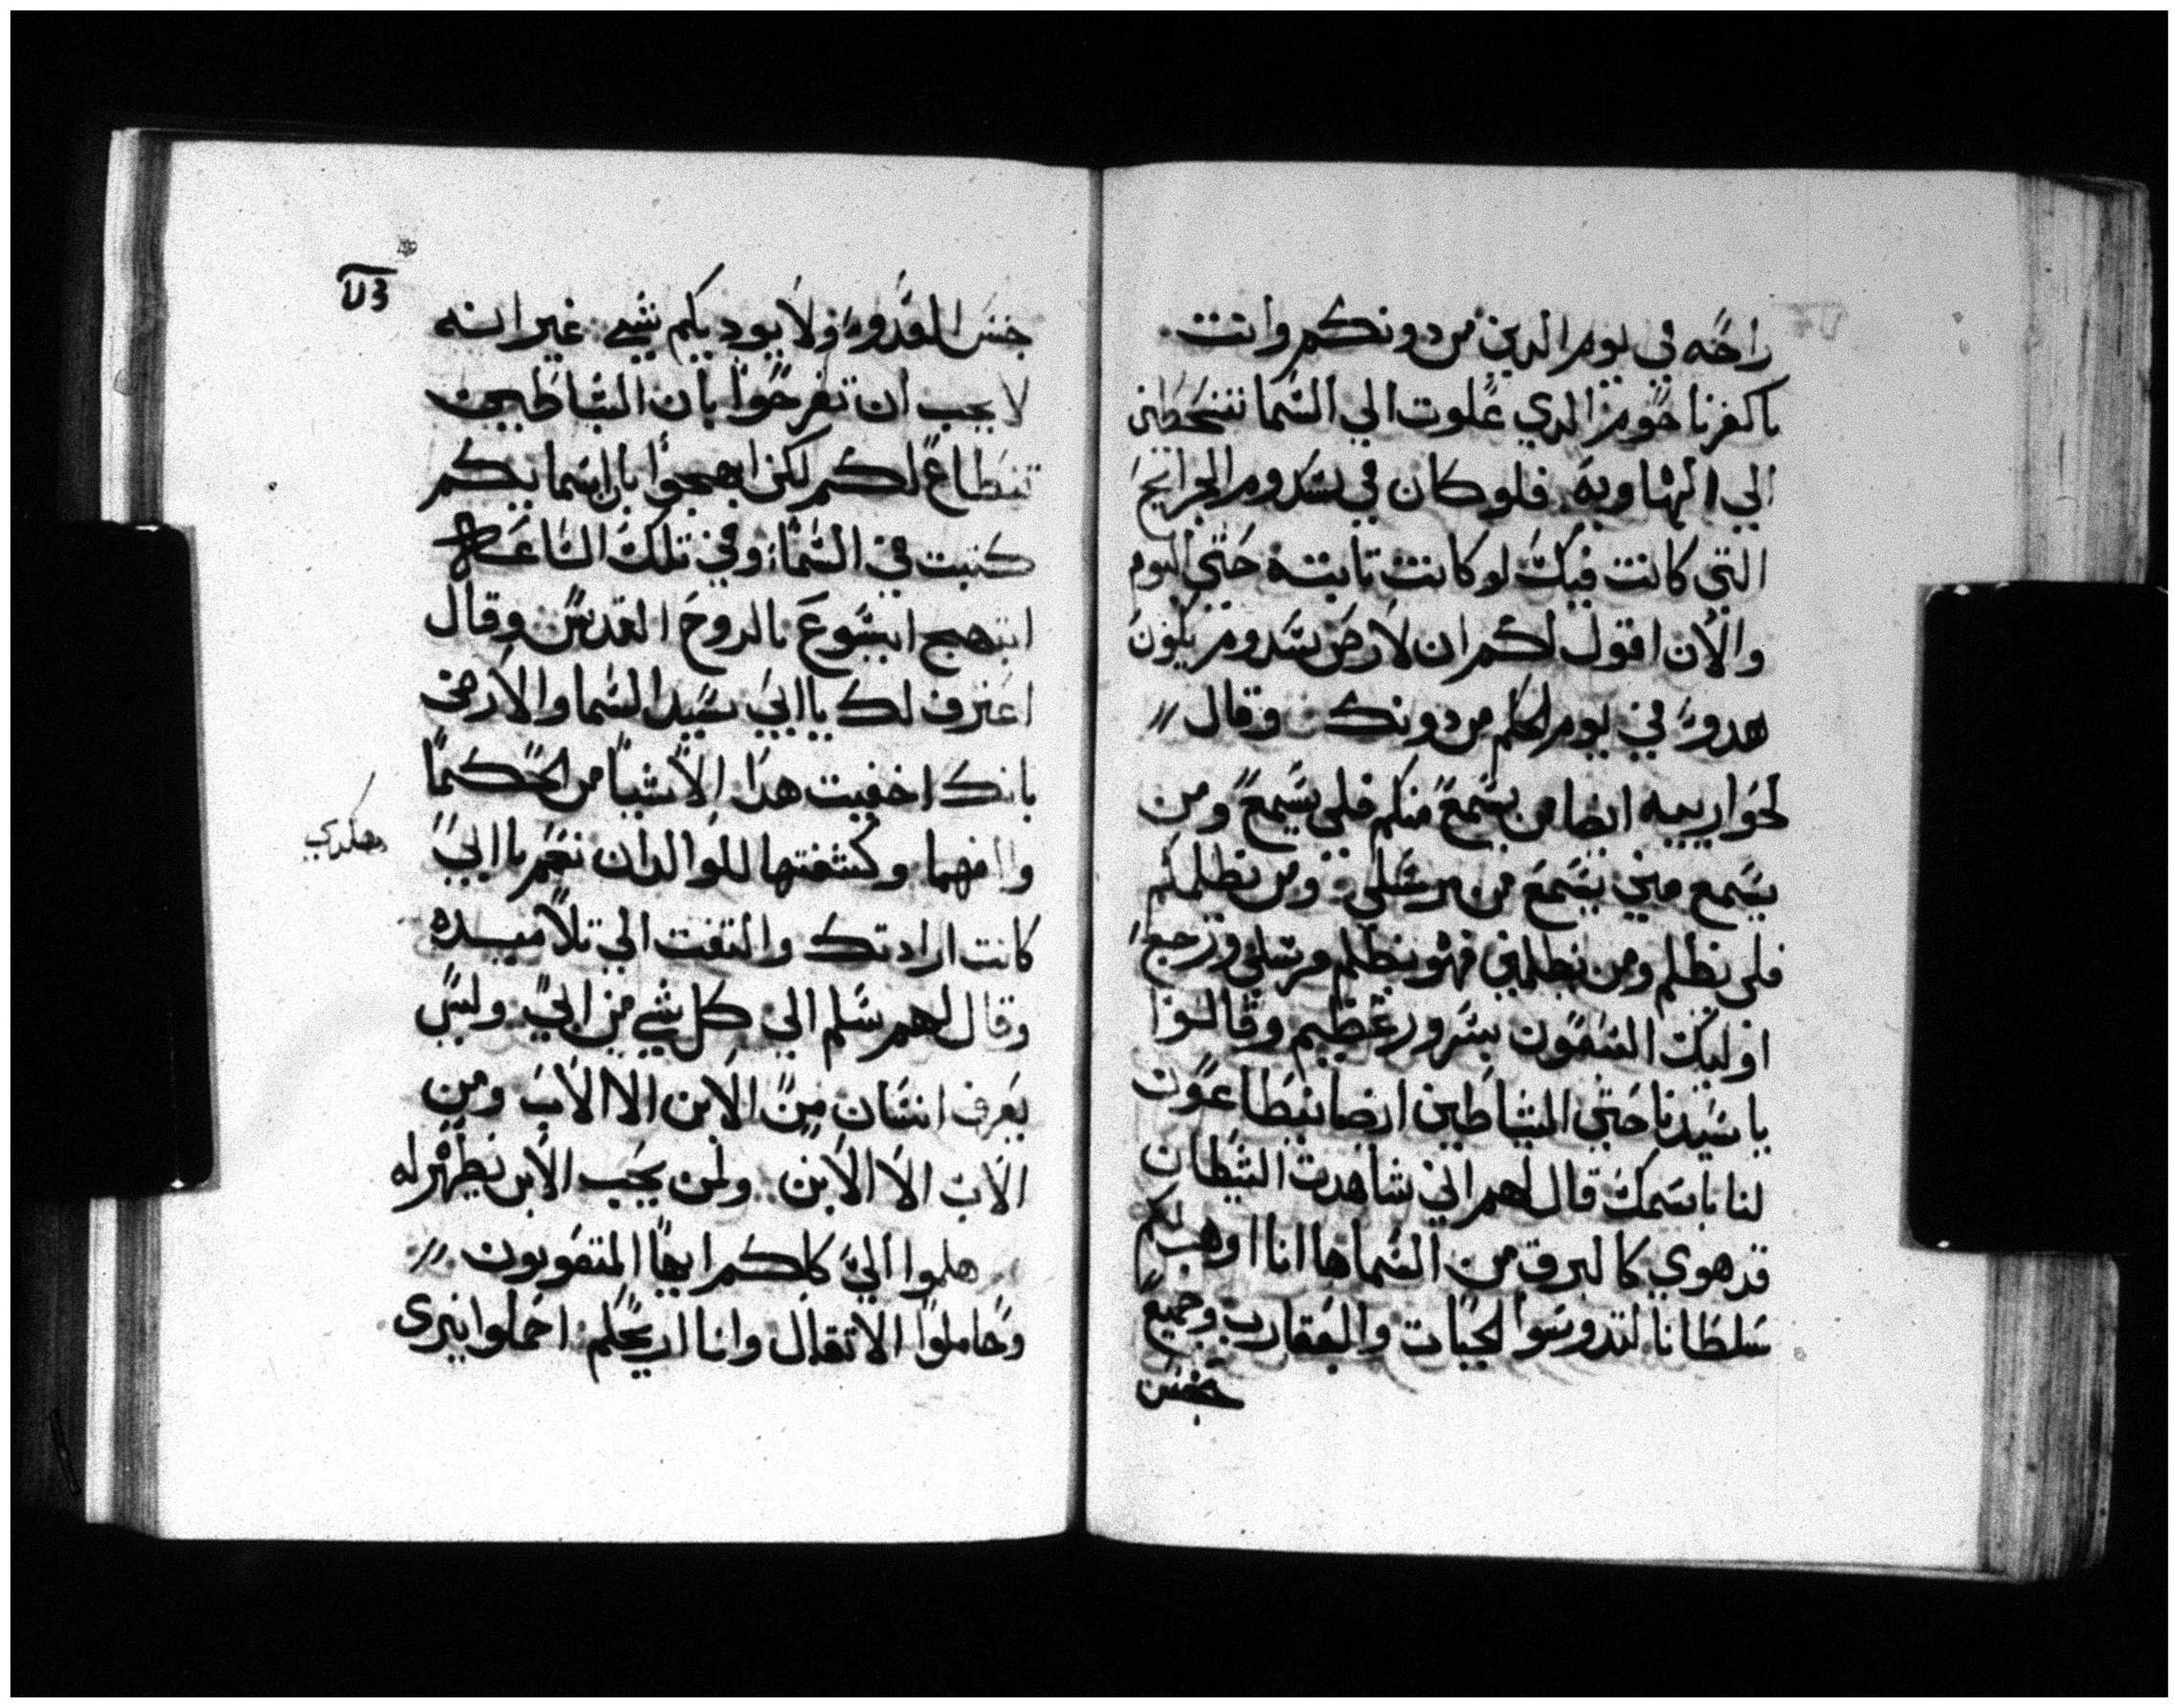 راحه في يوم الدين من دونكم وانت
ياكفرناحوم الدي علوت الي السما تنحطين
الي الهاويه فلو كان في سدوم الجرايح
التي كانت فيك لو كانت تابته حتي اليوم
والان اقول لكم ان لارض سدوم يكون
هدو في يوم الحكم من دونك وقال
لحواريه ايضا من يسمع منكم فلي يسمع ومن
يسمع مني يسمع من مرسلي ومن يظلمكم
فلي يظلم ومن يظلمني فهو يظلم مرسلي ورجع
اوليك السبعون بسرور عظيم وقالوا
يا سيدنا حتي الشياطين ايضا يتطاعون
لنا باسمك قال لهم اني شاهدت الشيطان
قد هوي كالبرق من السما ها انا اوهب لكم
سلطانا لتدوسوا الحيات والعقارب وجميع
جنس
جنس العدو ولا يوديكم شي غير انه
لا يجب ان تفرحوا بان الشياطين
تنطاع لكم لكن ابهجوا بان اسمايكم
كتبت في السما وفي تلك الساعه
ابتهج ايشوع بالروح القدس وقال
اعترف لك يا ابي سيد السما والارض
بانك اخفيت هدا الاشيا من الحكما
والفهما وكشفتها للوالدان نعم يا ابي
هكدي
كانت ارادتك والتفت الي تلاميده
وقال لهم سلم الي كل شي من ابي وليس
يعرف انسان من الابن الا الاب ومن
الاب الا الابن ولمن يحب الابن يظهر له
هلموا الي كلكم ايها المتعوبون
وحاملوا الاتقال وانا اريحكم احملوا نيري